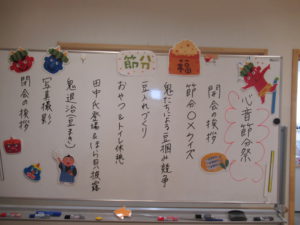 心音節分祭
開会の挨拶
節分〇×クイズ
鬼たちによる豆掴み競争
豆入れづくり
おやつ&トイレ休憩
田中氏登場&ほら貝披露
鬼退治(豆まき)
写真撮影
閉会の挨拶
節分
福